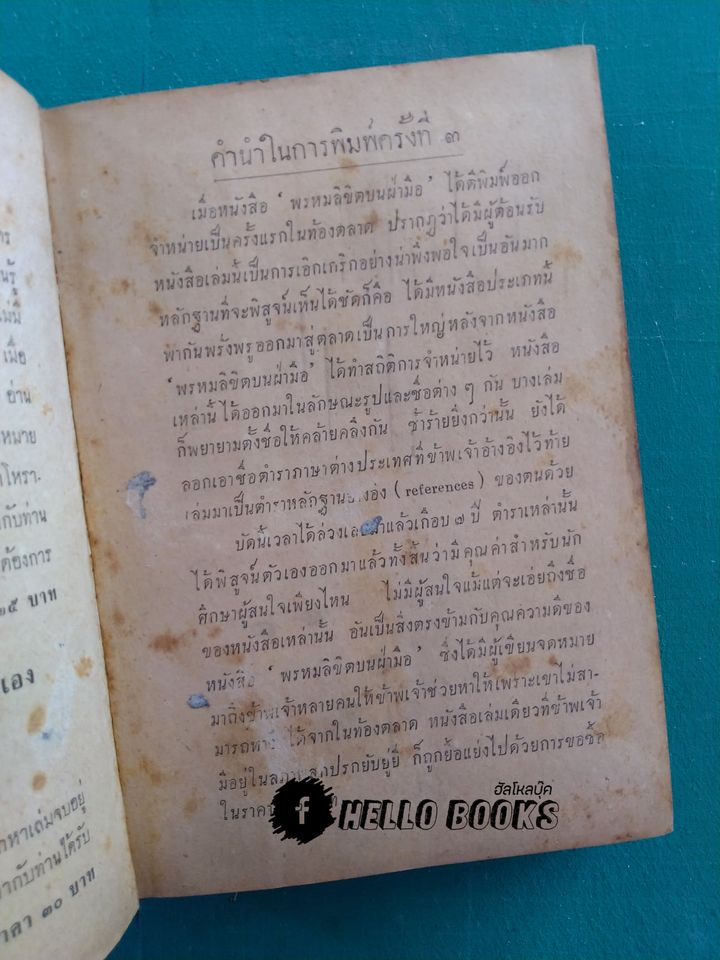 คำนำในการพิมพ์ครั้งที่ ๓
เมื่อหนังสือ ‘พรหมลิขิตบนฝ่ามือ’ ได้ตีพิมพ์ออก
จำหน่ายเป็นครั้งแรกในท้องตลาด ปรากฏว่าได้มีผู้ต้อนรับ
หนังสือเล่มนี้เป็นการเอิกเกริกอย่างน่าพึงพอใจเป็นอันมาก
หลักฐานที่จะพิสูจน์เห็นได้ชัดก็คือ ได้มีหนังสือประเภทนี้
พากันพรั่งพรูออกมาสู่ตลาดเป็นการใหญ่หลังจากหนังสือ
‘พรหมลิขิตบนฝ่ามือ’ ได้ทำสถิติการจำหน่ายไว้ หนังสือ
เหล่านี้ได้ออกมาในลักษณะรูปและชื่อต่าง ๆ กัน บางเล่ม
ก็พยายามตั้งชื่อให้คล้ายคลึงกัน ซ้ำร้ายยิ่งกว่านั้น ยังได้
ลอกเอาชื่อตำราภาษาต่างประเทศที่ข้าพเจ้าอ้างอิงไว้ท้าย
เล่มมาเป็นตำราหลักฐาน (references) ของตนด้วย
บัดนี้เวลาได้ล่วง มาแล้วเกือบ ๗ ปี ตำราเหล่านั้น
ได้พิสูจน์ตัวเองออกมาแล้วทั้งสิ้นว่ามีคุณค่าสำหรับนัก
ศึกษาผู้สนใจเพียงไหน ไม่มีผู้สนใจแม้แต่จะเอ่ยถึงชื่อ
ของหนังสือเหล่านั้น อันเป็นสิ่งตรงข้ามกับคุณความดีของ
หนังสือ ‘พรหมลิขิตบนฝ่ามือ’ ซึ่งได้มีผู้เขียนจดหมาย
มาถึงข้าพเจ้าหลายคนให้ข้าพเจ้าช่วยหาให้เพราะเขาไม่สา-
มารถหา ได้จากในท้องตลาด หนังสือเล่มเดียวที่ข้าพเจ้า
มีอยู่ใน ปรกยับยู่ยี่ ก็ถูกยื้อแย่งไปด้วยการขอซื้อ
ในราคา
ฮัลโหลบุ๊ค
f HELLO BOOKS
การ
เมื่อ
อ่าน
หมาย
โหรา-
กับท่าน
ต้องการ
๒๕ บาท
เอง
หาเต่มจบอยู่
กับท่านได้รับ
๓๐ บาท